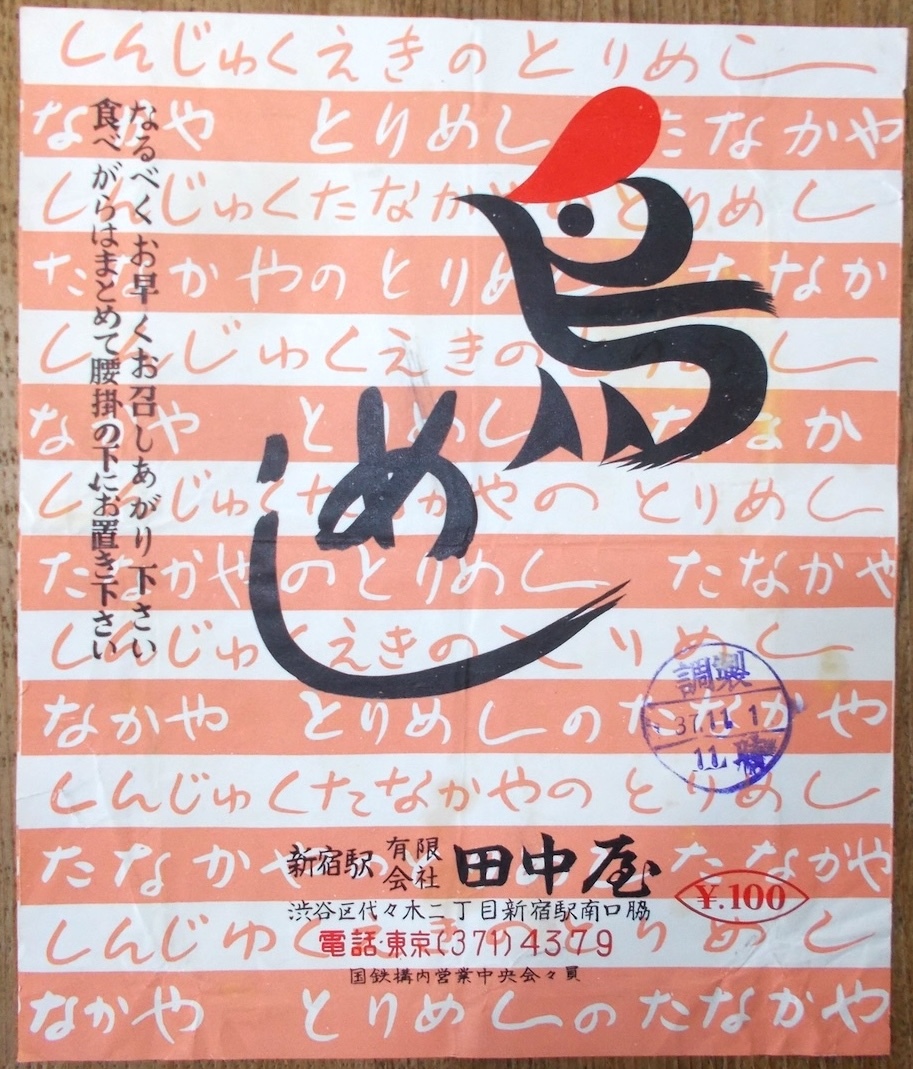 しんじゅくえきのとりめし
なかや とりめし たなかや
しんじゅくたなかやのとりめし
たなかやのとりめし たなか
しんじゅくえきのとりめし
なかや とりめし たなか
しんじゅくたなかやのとりめし
たなかやのとりめし たなかや
しんじゅくえきのとりめし
なかや とりめしのたなかや
しんじゅくたなかやのとりめし
たなかやのとりめし たなかや
しんじゅくえきのとりめし
なかや とりめしのたなかや
鳥
めし
なるべくお早くお召しあがり下さい
食べがらはまとめて腰掛の下にお置き下さい
調製
37.11.1
11
新宿駅 有限会社 田中屋
¥.100
渋谷区代々木二丁目新宿駅南口脇
電話・東京(371)4379
国鉄構内営業中央会々員